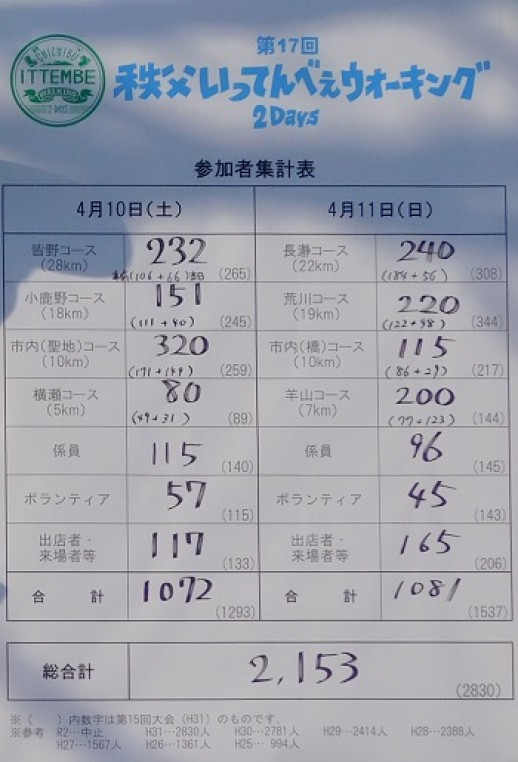 CHICHIBU
ITTEMBE
2 DAYS
第17回
秩父いってんべぇウオーキング
2Days
参加者集計表
4月10日(土) 4月11日(日)
皆野コース 232 長瀞コース 240
(28km) (106+66) (265) (22km) (184+56) (308)
小鹿野コース 151 荒川コース 220
(18km) (111+40) (245) (19km) (122+98) (344)
市内(聖地)コース 320 市内(橋)コース 115
(10km) (171+149) (259) (10km) (86+29) (217)
横瀬コース 80 羊山コース 200
(5km) (49+31) (89) (7km) (77+123) (144)
係員 115 (140) 係員 96 (145)
ボランティア 57 (115) ボランティア 45 (143)
出店者・ 117 出店者・ 165
来場者等 (133) 来場者等 (206)
合 計 1072 (1293) 合 計 1081 (1537)
総合計 2,153 (2830)
※( )内数字は第15回大会(H31)のものです。
※参考 R2…中止 H31…2830人 H30…2781人 H29…2414人 H28…2388人
H27…1567人 H26…1361人 H25… 994人